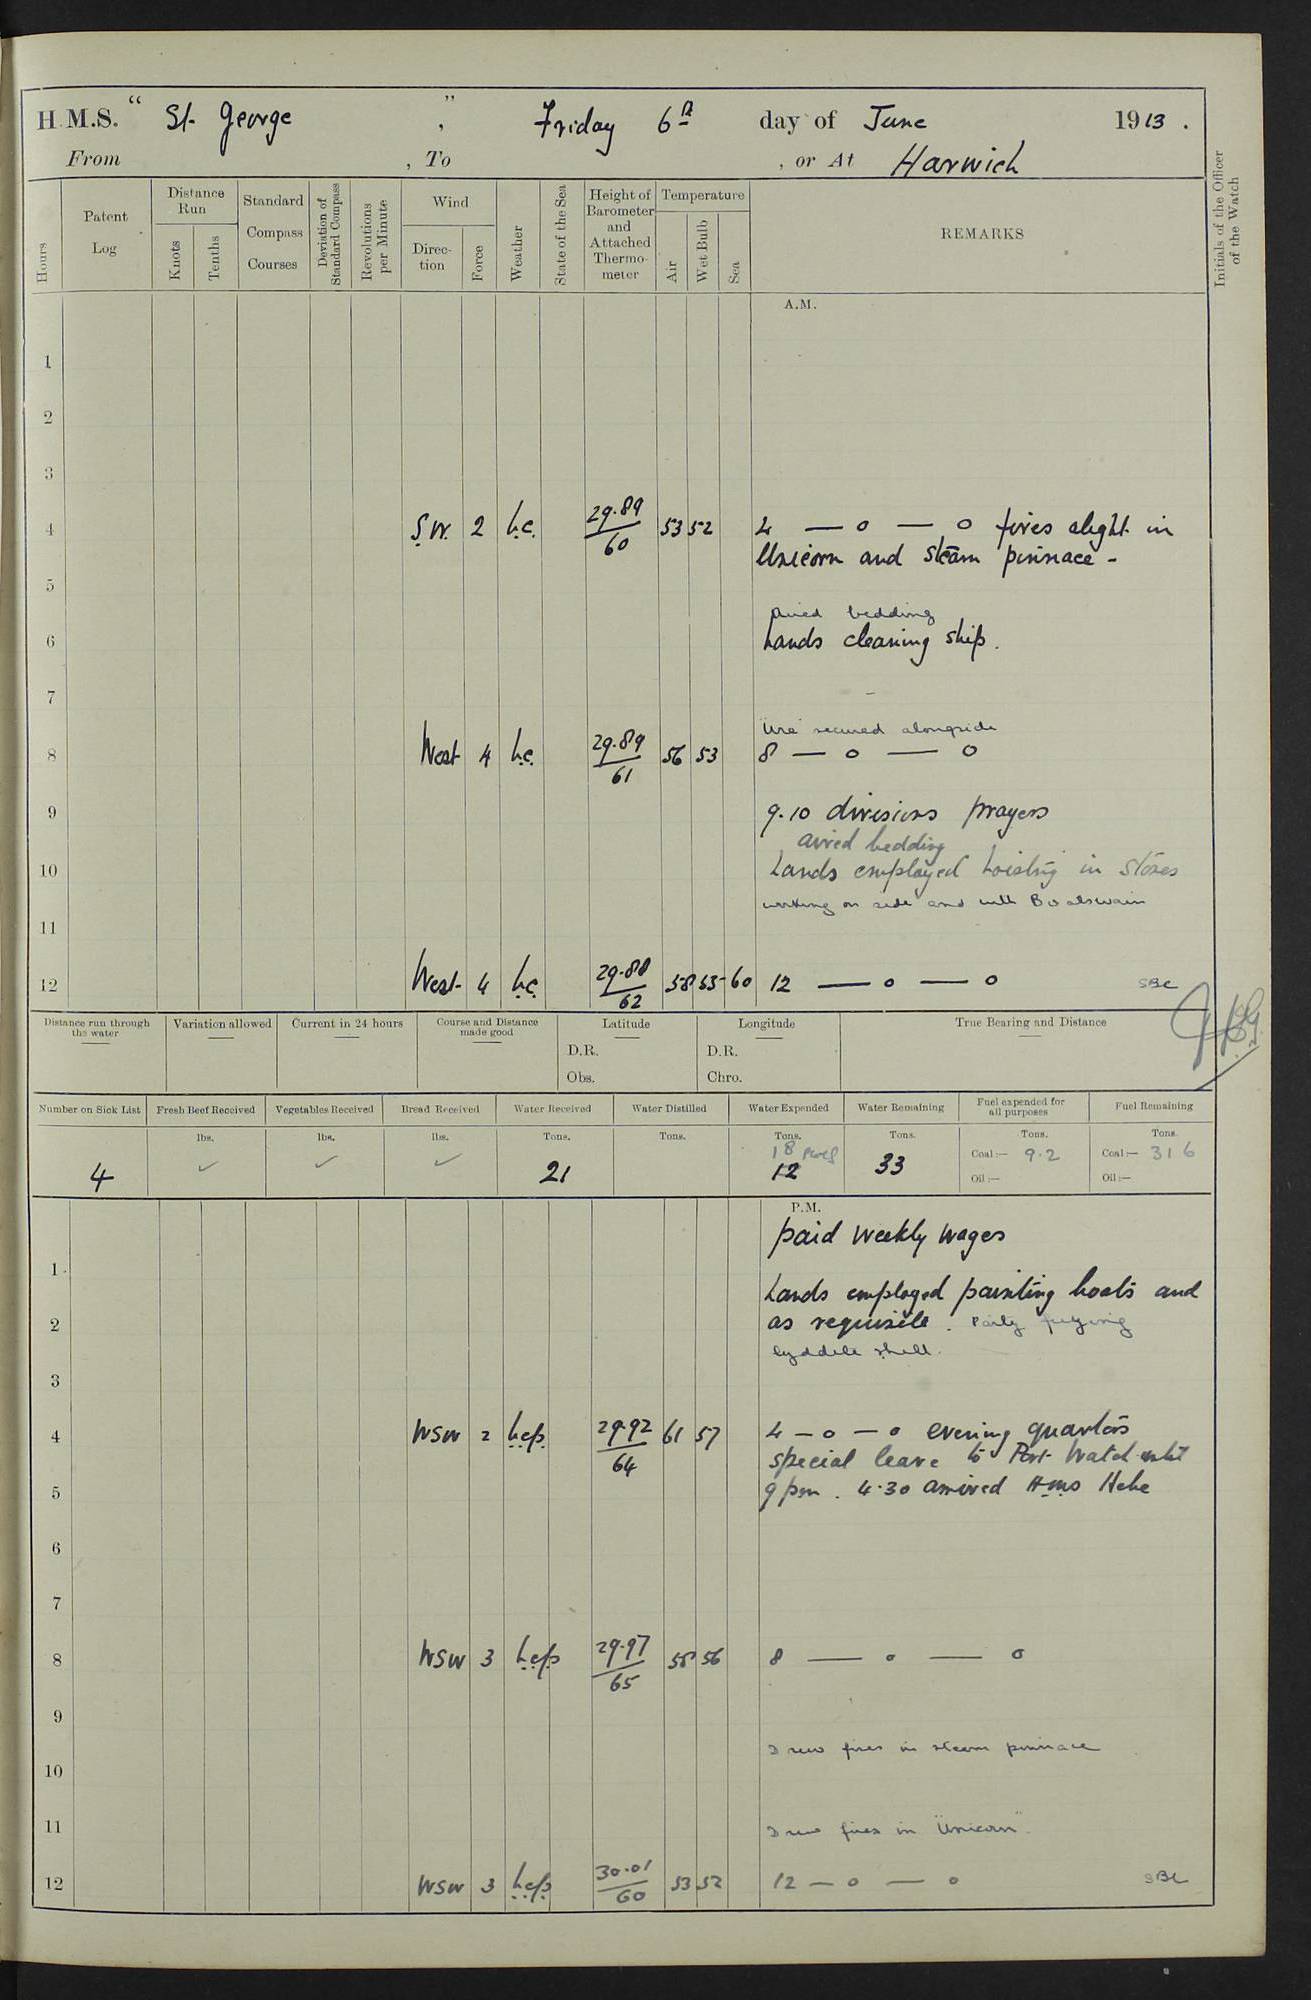 H.M.S. " St. George ", Friday 6th day of June 1913.
From , To , or At Harwich
Hours
Patent Log
Distance Run
Knots
Tenths
Standard Compass Courses
Deviation of Standard Compass
Revolutions per Minute
Wind
Direction
Force
Weather
State of the Sea
Height of Barometer and Attached Thermometer
Temperature
Air
Wet Bulb
Sea
REMARKS
Initials of the Officer of the Watch
A.M.
1
2
3
4 S.W. 2 b.c. 29.89/60 53 52 4 — o — o fires alight in
Unicorn and steam pinnace -
5
aired bedding
6 Hands cleaning ship.
7
"Ure" secured alongside
8 West 4 b.c. 29.89/61 56 53 8 — o — o
9 9.10 divisions prayers
aired bedding
10 Hands employed hoisting in stores
working on side and with Boatswain
11
12 West 4 b.c. 29.88/62 58 55 60 12 — o — o SBC
Distance run through the water
Variation allowed
Current in 24 hours
Course and Distance made good
Latitude
D.R.
Obs.
Longitude
D.R.
Chro.
True Bearing and Distance
Number on Sick List
Fresh Beef Received
Vegetables Received
Bread Received
Water Received
Water Distilled
Water Expended
Water Remaining
Fuel expended for all purposes
Fuel Remaining
lbs. lbs. lbs. Tons. Tons. Tons. Tons. Tons. Tons.
18
Coal:— 9.2 Coal:— 316
4 ✓ ✓ ✓ 21 12 33
Oil:— Oil:—
P.M.
paid weekly wages
1
Hands employed painting boats and
2 as requisite. Party
lyddite shell.
3
4 WSW 2 b.c.p. 29.92/64 61 57 4 — o — o evening quarters
special leave to Port Watch until
5 9 pm. 4.30 arrived HMS Hebe
6
7
8 WSW 3 b.c.p. 29.97/65 58 56 8 — o — o
9
Drew fires in steam pinnace
10
11 Drew fires in "Unicorn"
12 WSW 3 b.c.p. 30.01/60 53 52 12 — o — o SBC